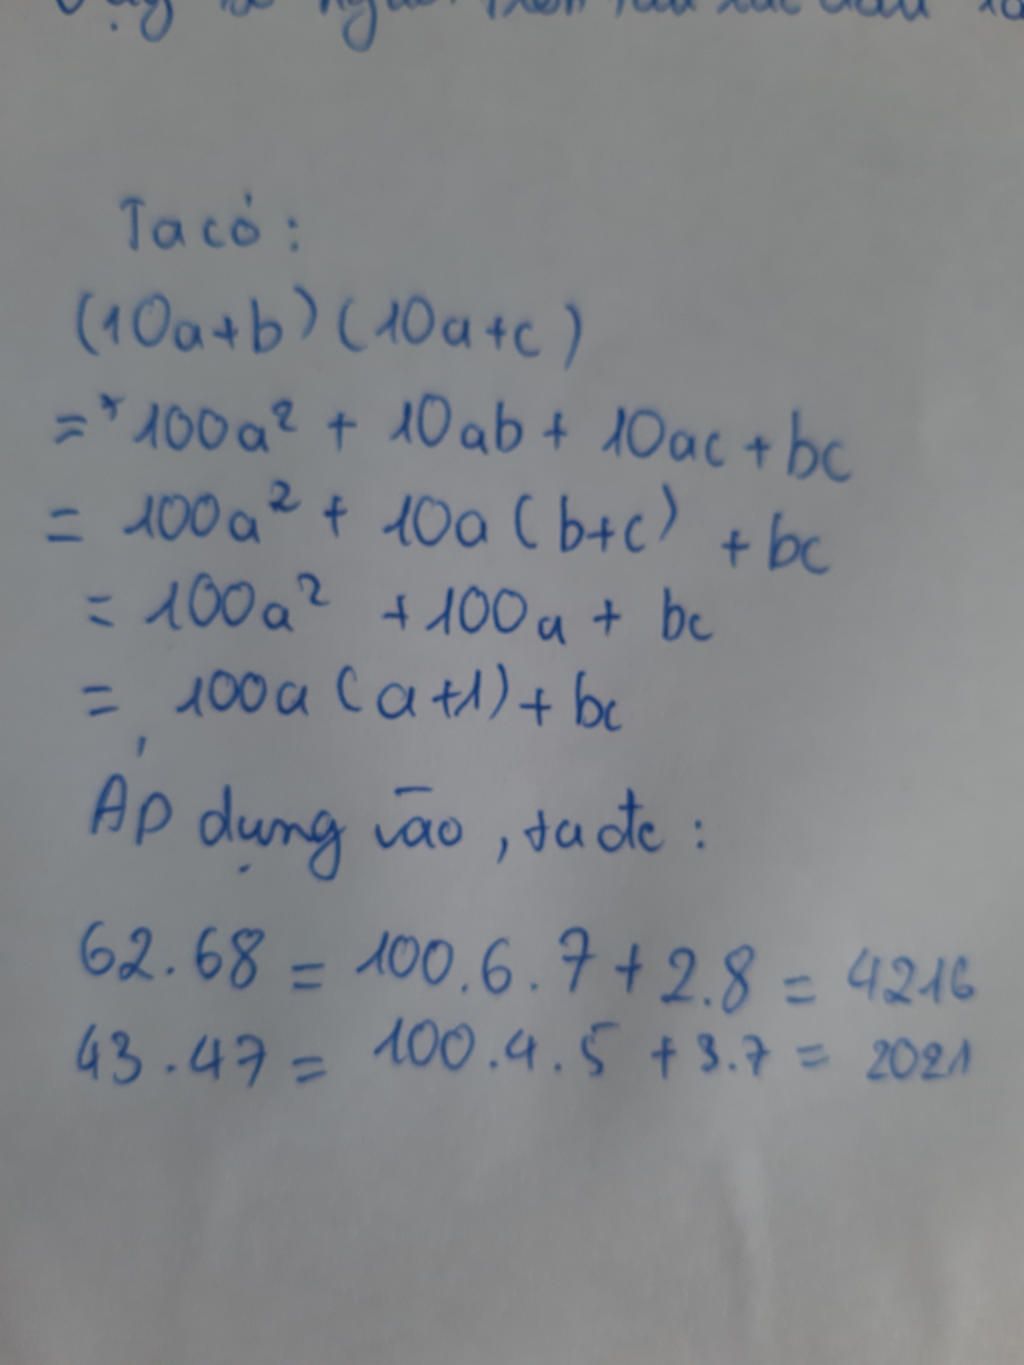 Ta có:
(10a+b)(10a+c)
= 100a² + 10ab + 10ac + bc
= 100a² + 10a(b+c) + bc
= 100a² + 100a + bc
= 100a(a+1) + bc
Áp dụng vào, ta đc:
62.68 = 100.6.7 + 2.8 = 4216
43.47 = 100.4.5 + 3.7 = 2021